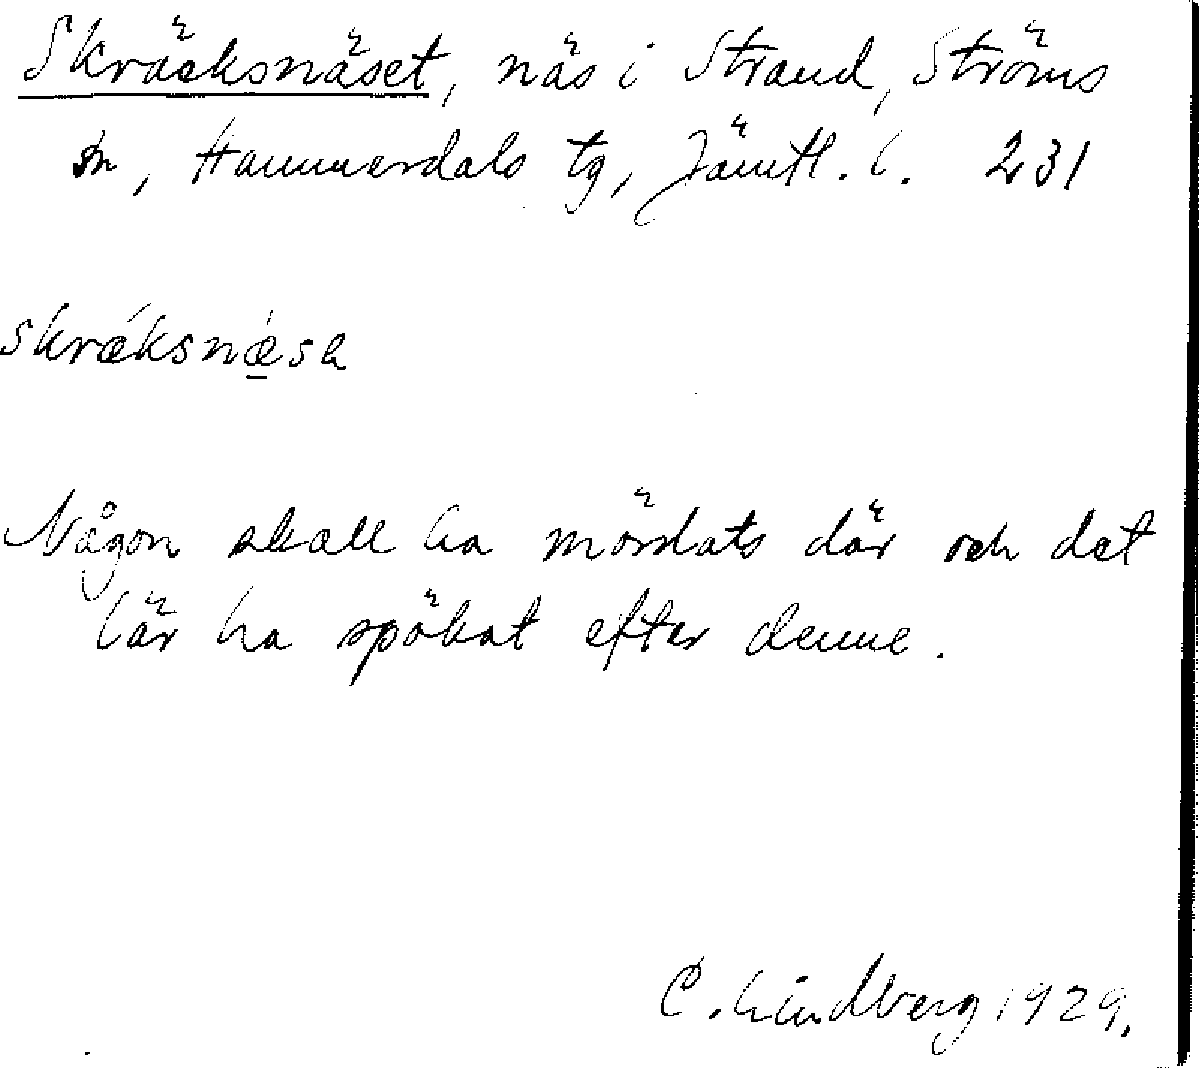 Skräcksnäset, näs i Strand, Ströms
sn, Hammerdals tg, Jämtl. l. 231
skrǽksnǽsa
Någon skall ha mördats där och det
lär ha spökat efter denne.
C. Lindberg 1929.